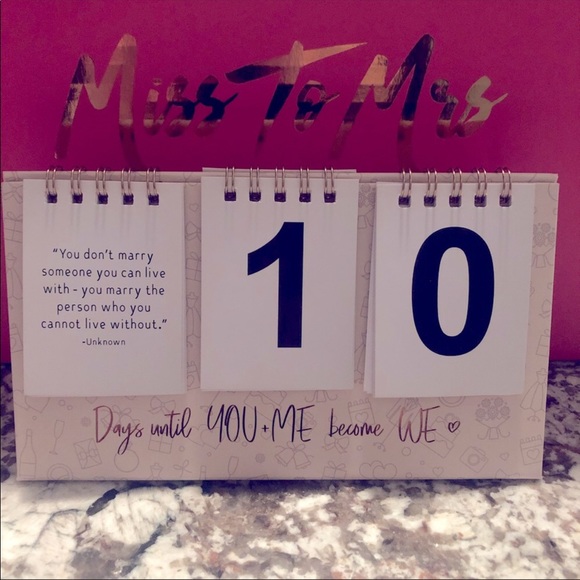 Miss To Mrs
“You don’t marry
someone you can live
with - you marry the
person who you
cannot live without.”
-Unknown
10
Days until YOU+ME become WE ♡